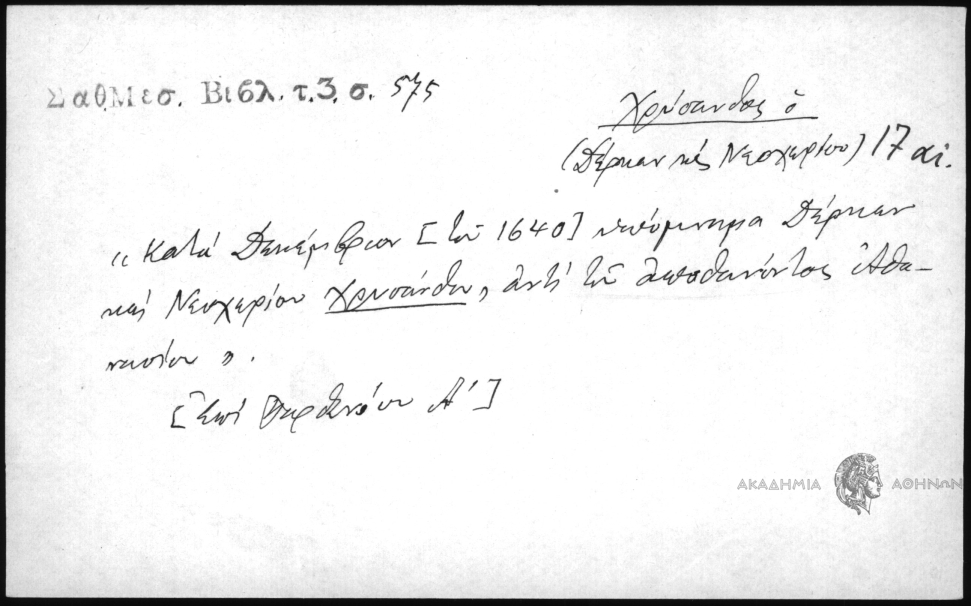 Σαθ. Μεσ. Βιβλ. τ. 3. σ. 575
Χρύσανθος ὁ
(Δέρκων κὲ Νεοχωρίου) 17 αἰ.
«Κατὰ Δεκέμβριον [τοῦ 1640] ὑπόμνημα Δέρκων
καὶ Νεοχωρίου Χρυσάνθου, ἀντὶ τοῦ ἀποθανόντος Ἀθα-
νασίου».
[Ἐπὶ Παρθενίου Α´]
ΑΚΑΔΗΜΙΑ ΑΘΗΝΩΝ